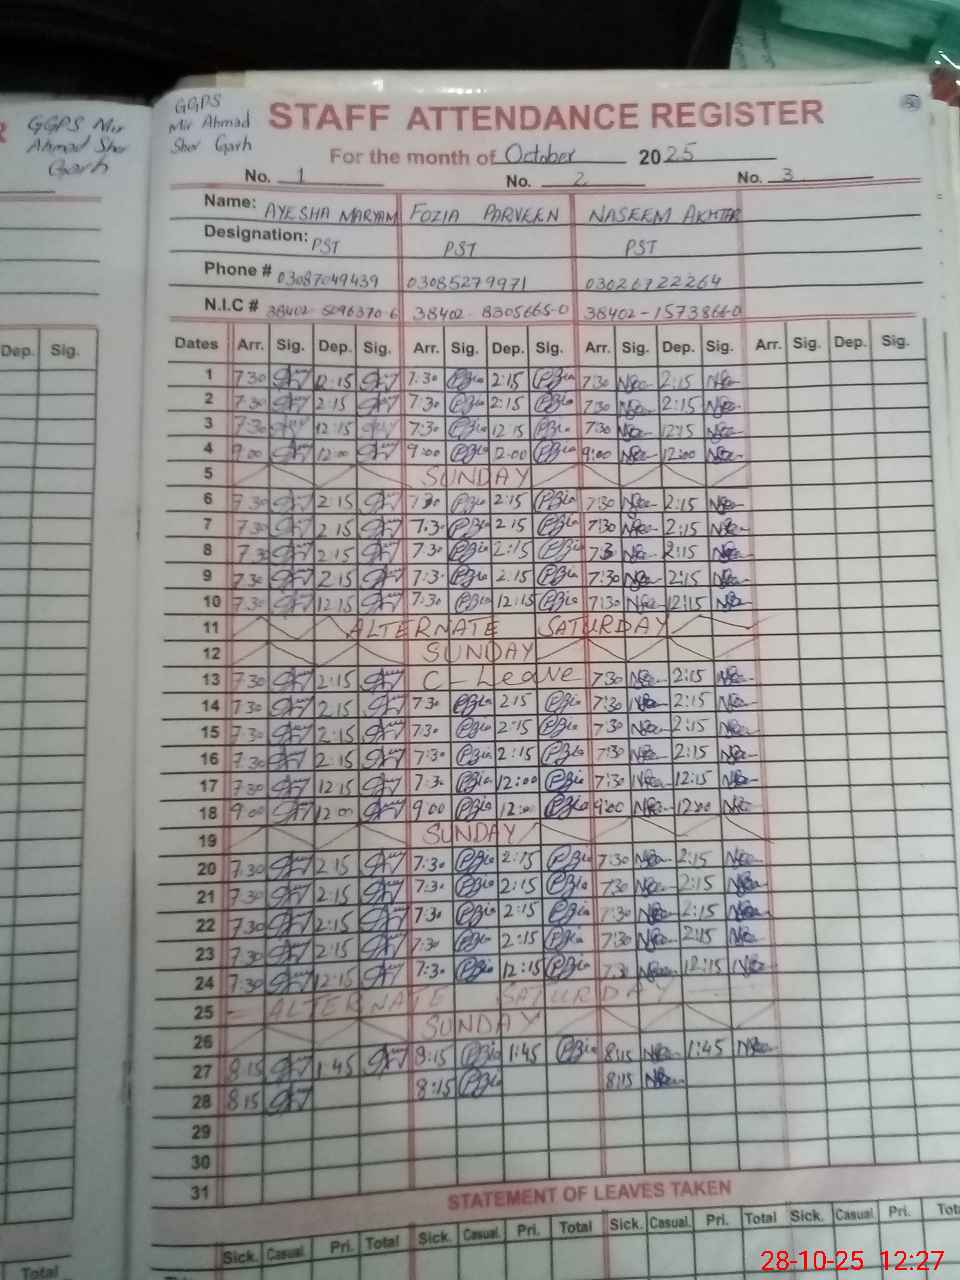 GGPS Mir
Ahmad Sher
Garh
GGPS
Mir Ahmad
Sher Garh
STAFF ATTENDANCE REGISTER
50
For the month of October 2025
No. 1 No. 2 No. 3
Name: AYESHA MARYAM FOZIA PARVEEN NASEEM AKHTAR
Designation: PST PST PST
Phone # 03087049439 03085279971 03026722264
N.I.C # 38402-5096370-6 38402-8305665-0 38402-1573866-0
Dep. Sig.
Dates Arr. Sig. Dep. Sig. Arr. Sig. Dep. Sig. Arr. Sig. Dep. Sig. Arr. Sig. Dep. Sig.
1 7:30 2:15 7:30 2:15 7:30 2:15
2 7:30 2:15 7:30 2:15 7:30 2:15
3 7:30 12:15 7:30 12:15 7:30 12:15
4 9:00 12:00 9:00 12:00 9:00 12:00
5 SUNDAY
6 7:30 2:15 7:30 2:15 7:30 2:15
7 7:30 2:15 7:30 2:15 7:30 2:15
8 7:30 2:15 7:30 2:15 7:3 2:15
9 7:30 2:15 7:30 2:15 7:30 2:15
10 7:30 12:15 7:30 12:15 7:30 12:15
11 ALTERNATE SATURDAY
12 SUNDAY
13 7:30 2:15 C-Leave 7:30 2:15
14 7:30 2:15 7:30 2:15 7:30 2:15
15 7:30 2:15 7:30 2:15 7:30 2:15
16 7:30 2:15 7:30 2:15 7:30 2:15
17 7:30 12:15 7:30 12:00 7:30 12:15
18 9:00 12:00 9:00 12:00 9:00 12:00
19 SUNDAY
20 7:30 2:15 7:30 2:15 7:30 2:15
21 7:30 2:15 7:30 2:15 7:30 2:15
22 7:30 2:15 7:30 2:15 7:30 2:15
23 7:30 2:15 7:30 2:15 7:30 2:15
24 7:30 12:15 7:30 12:15 7:30 12:15
25 ALTERNATE SATURDAY
26 SUNDAY
27 8:15 1:45 8:15 1:45 8:15 1:45
28 8:15 8:15 8:15
29
30
31
STATEMENT OF LEAVES TAKEN
Sick. Casual. Pri. Total Sick. Casual. Pri. Total Sick. Casual. Pri. Total Sick. Casual. Pri.
Total
28-10-25 12:27